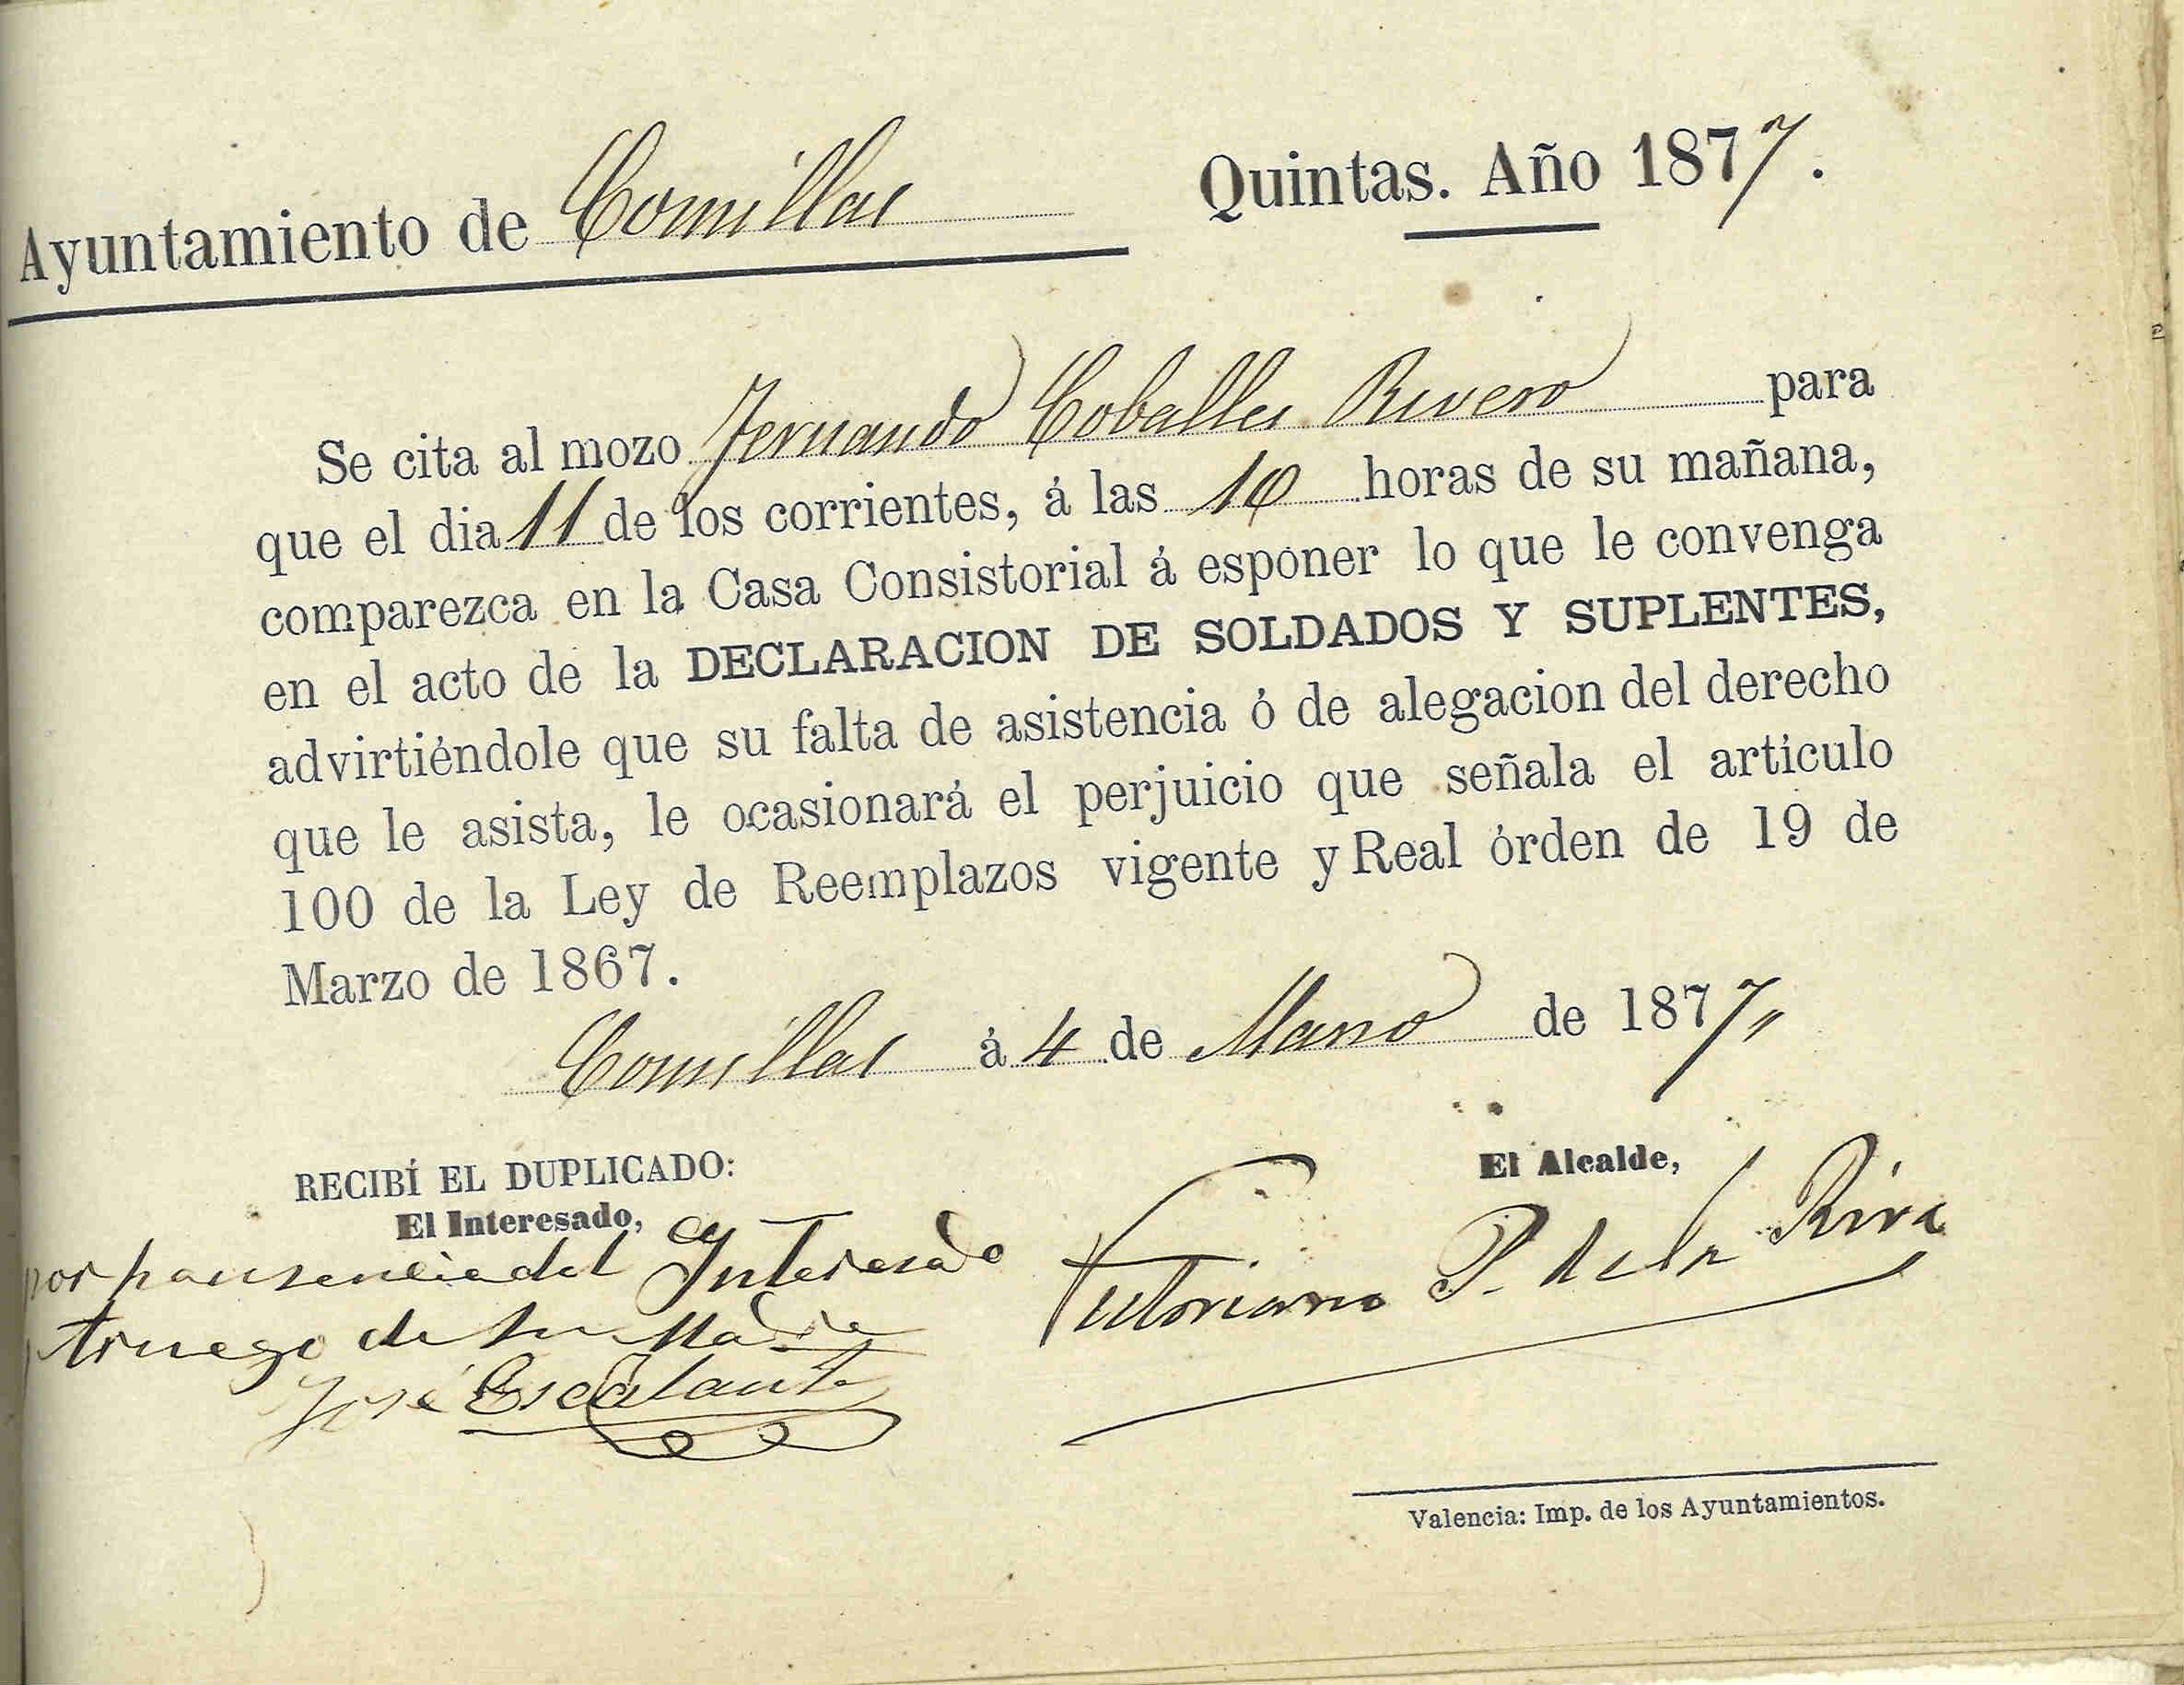 Ayuntamiento de Comillas
Quintas. Año 1877.
Se cita al mozo Fernando Coballes Rivero para
que el dia 11 de los corrientes, á las 10 horas de su mañana,
comparezca en la Casa Consistorial á esponer lo que le convenga
en el acto de la DECLARACION DE SOLDADOS Y SUPLENTES,
advirtiéndole que su falta de asistencia ó de alegacion del derecho
que le asista, le ocasionará el perjuicio que señala el artículo
100 de la Ley de Reemplazos vigente y Real órden de 19 de
Marzo de 1867.
Comillas á 4 de Marzo de 1877,,
RECIBÍ EL DUPLICADO:
El Interesado,
por hausencia del Interesado
de su Madre
José Escalante
El Alcalde,
Victoriano P. de la Riva
Valencia: Imp. de los Ayuntamientos.